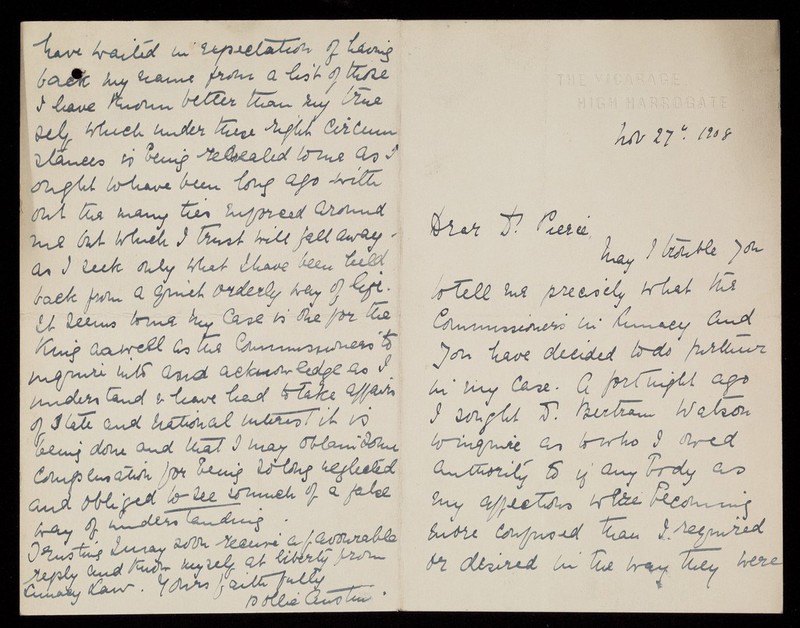 THE VICARAGE
HIGH HARROGATE
Nov 27th. 1908
Dear Dr. Pierce,
May I trouble you
to tell me precisely what the
Commissioners in Lunacy and
you have decided to do further
in my case. A fortnight ago
I sought Dr. Bertram Watson
to inquire as to who I owed
authority to if any body as
my affections were becoming
more confused than I required
or desired in the way they were
have waited in expectation of having
back my name from a list of those
I have known better than my true
self which under these right circum
stances is being revealed to me as I
ought to have been long ago with
out the many ties enforced around
me but which I trust will fall away -
as I seek only what I have been held
back from a quiet orderly way of life.
It seems to me my case is one for the
King as well as the Commissioners to
inquire into and acknowledge as I
understand to have had to take affairs
of State and national interest it is
being done and that I may obtain some
compensation for being so long neglected
and obliged to see so much of a false
way of understanding.
Trusting I may soon receive a favourable
reply and know myself at liberty from
Lunacy Law. Yours faithfully
Dollie Austin.